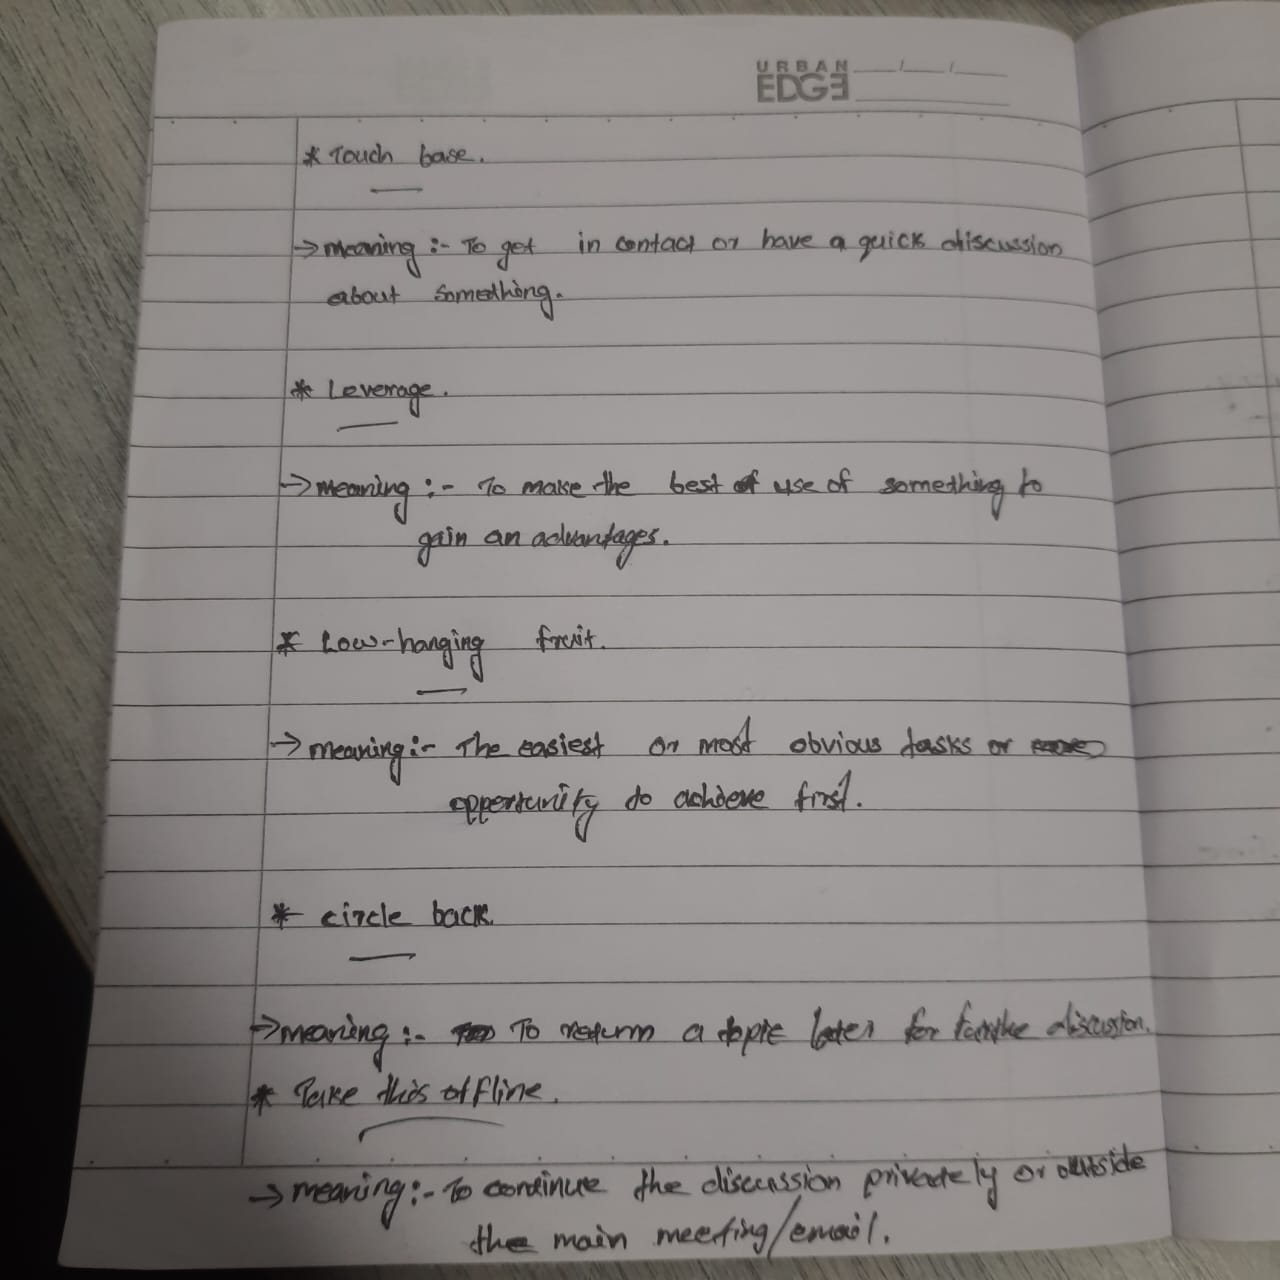 URBAN
EDGE
* Touch base.
→ meaning :- To get in contact or have a quick discussion
about something.
* Leverage.
→ meaning :- To make the best of use of something to
gain an advantages.
* Low-hanging fruit.
→ meaning :- The easiest or most obvious tasks or
oppertunity to achieve first.
* circle back.
→ meaning :- To return a topic later for discussion.
* Take this offline.
→ meaning :- To continue the discussion privately or outside
the main meeting/email.